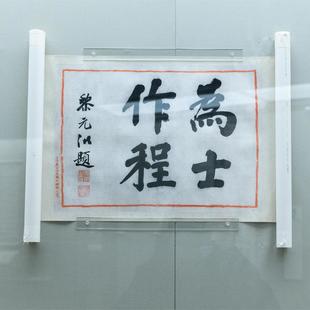 為士
作程
黎元洪題